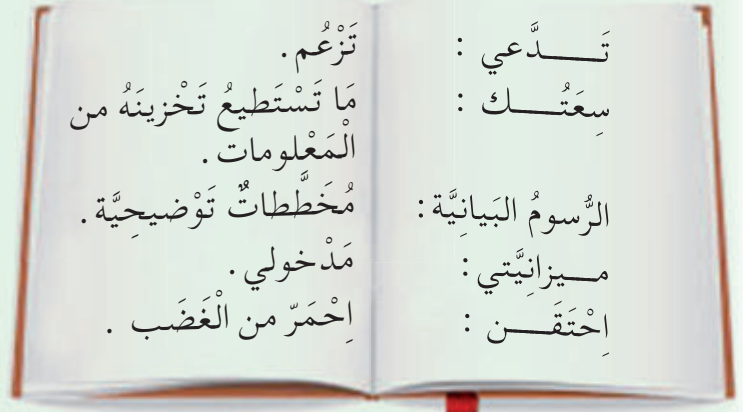 تَـــدَّعي : تَزْعُم.
سِعَتُـــك : مَا تَسْتَطيعُ تَخْزينَهُ من
الْمَعْلومات.
الرُّسومُ البَيانِيَّة: مُخَطَّطاتٌ تَوْضيحِيَّة.
مــيزانِيَّتي: مَدْخولي.
اِحْتَقَــن : اِحْمَرّ من الْغَضَب .